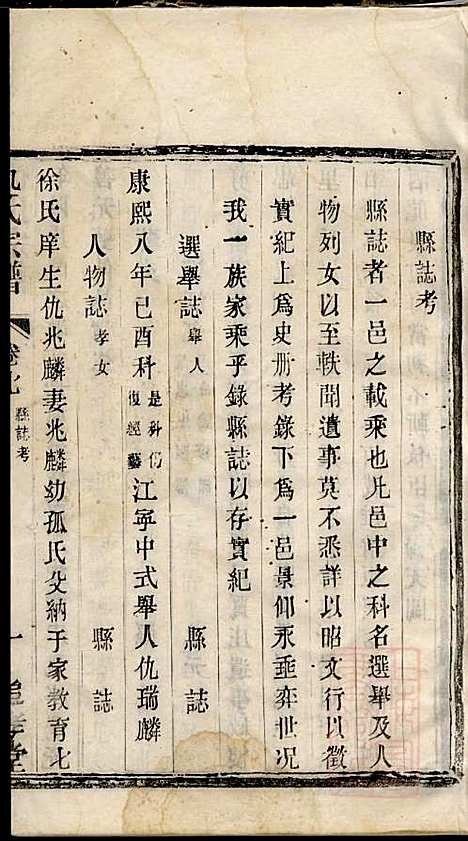 縣誌考
縣誌者一邑之載乘也凡邑中之科名選舉及人
物列女以至軼聞遺事莫不悉詳以昭文行以徵
實紀上爲史册考錄下爲一邑景仰永垂奕世况
我一族家乘乎錄縣誌以存實紀
選舉誌 舉人 縣誌
康熙八年己酉科 是科仍復經藝 江寧中式舉人仇瑞麟
人物誌 孝女 縣誌
徐氏庠生仇兆麟妻兆麟幼孤氏父納于家教育七
氏宗譜 卷七 縣誌考 一 堂